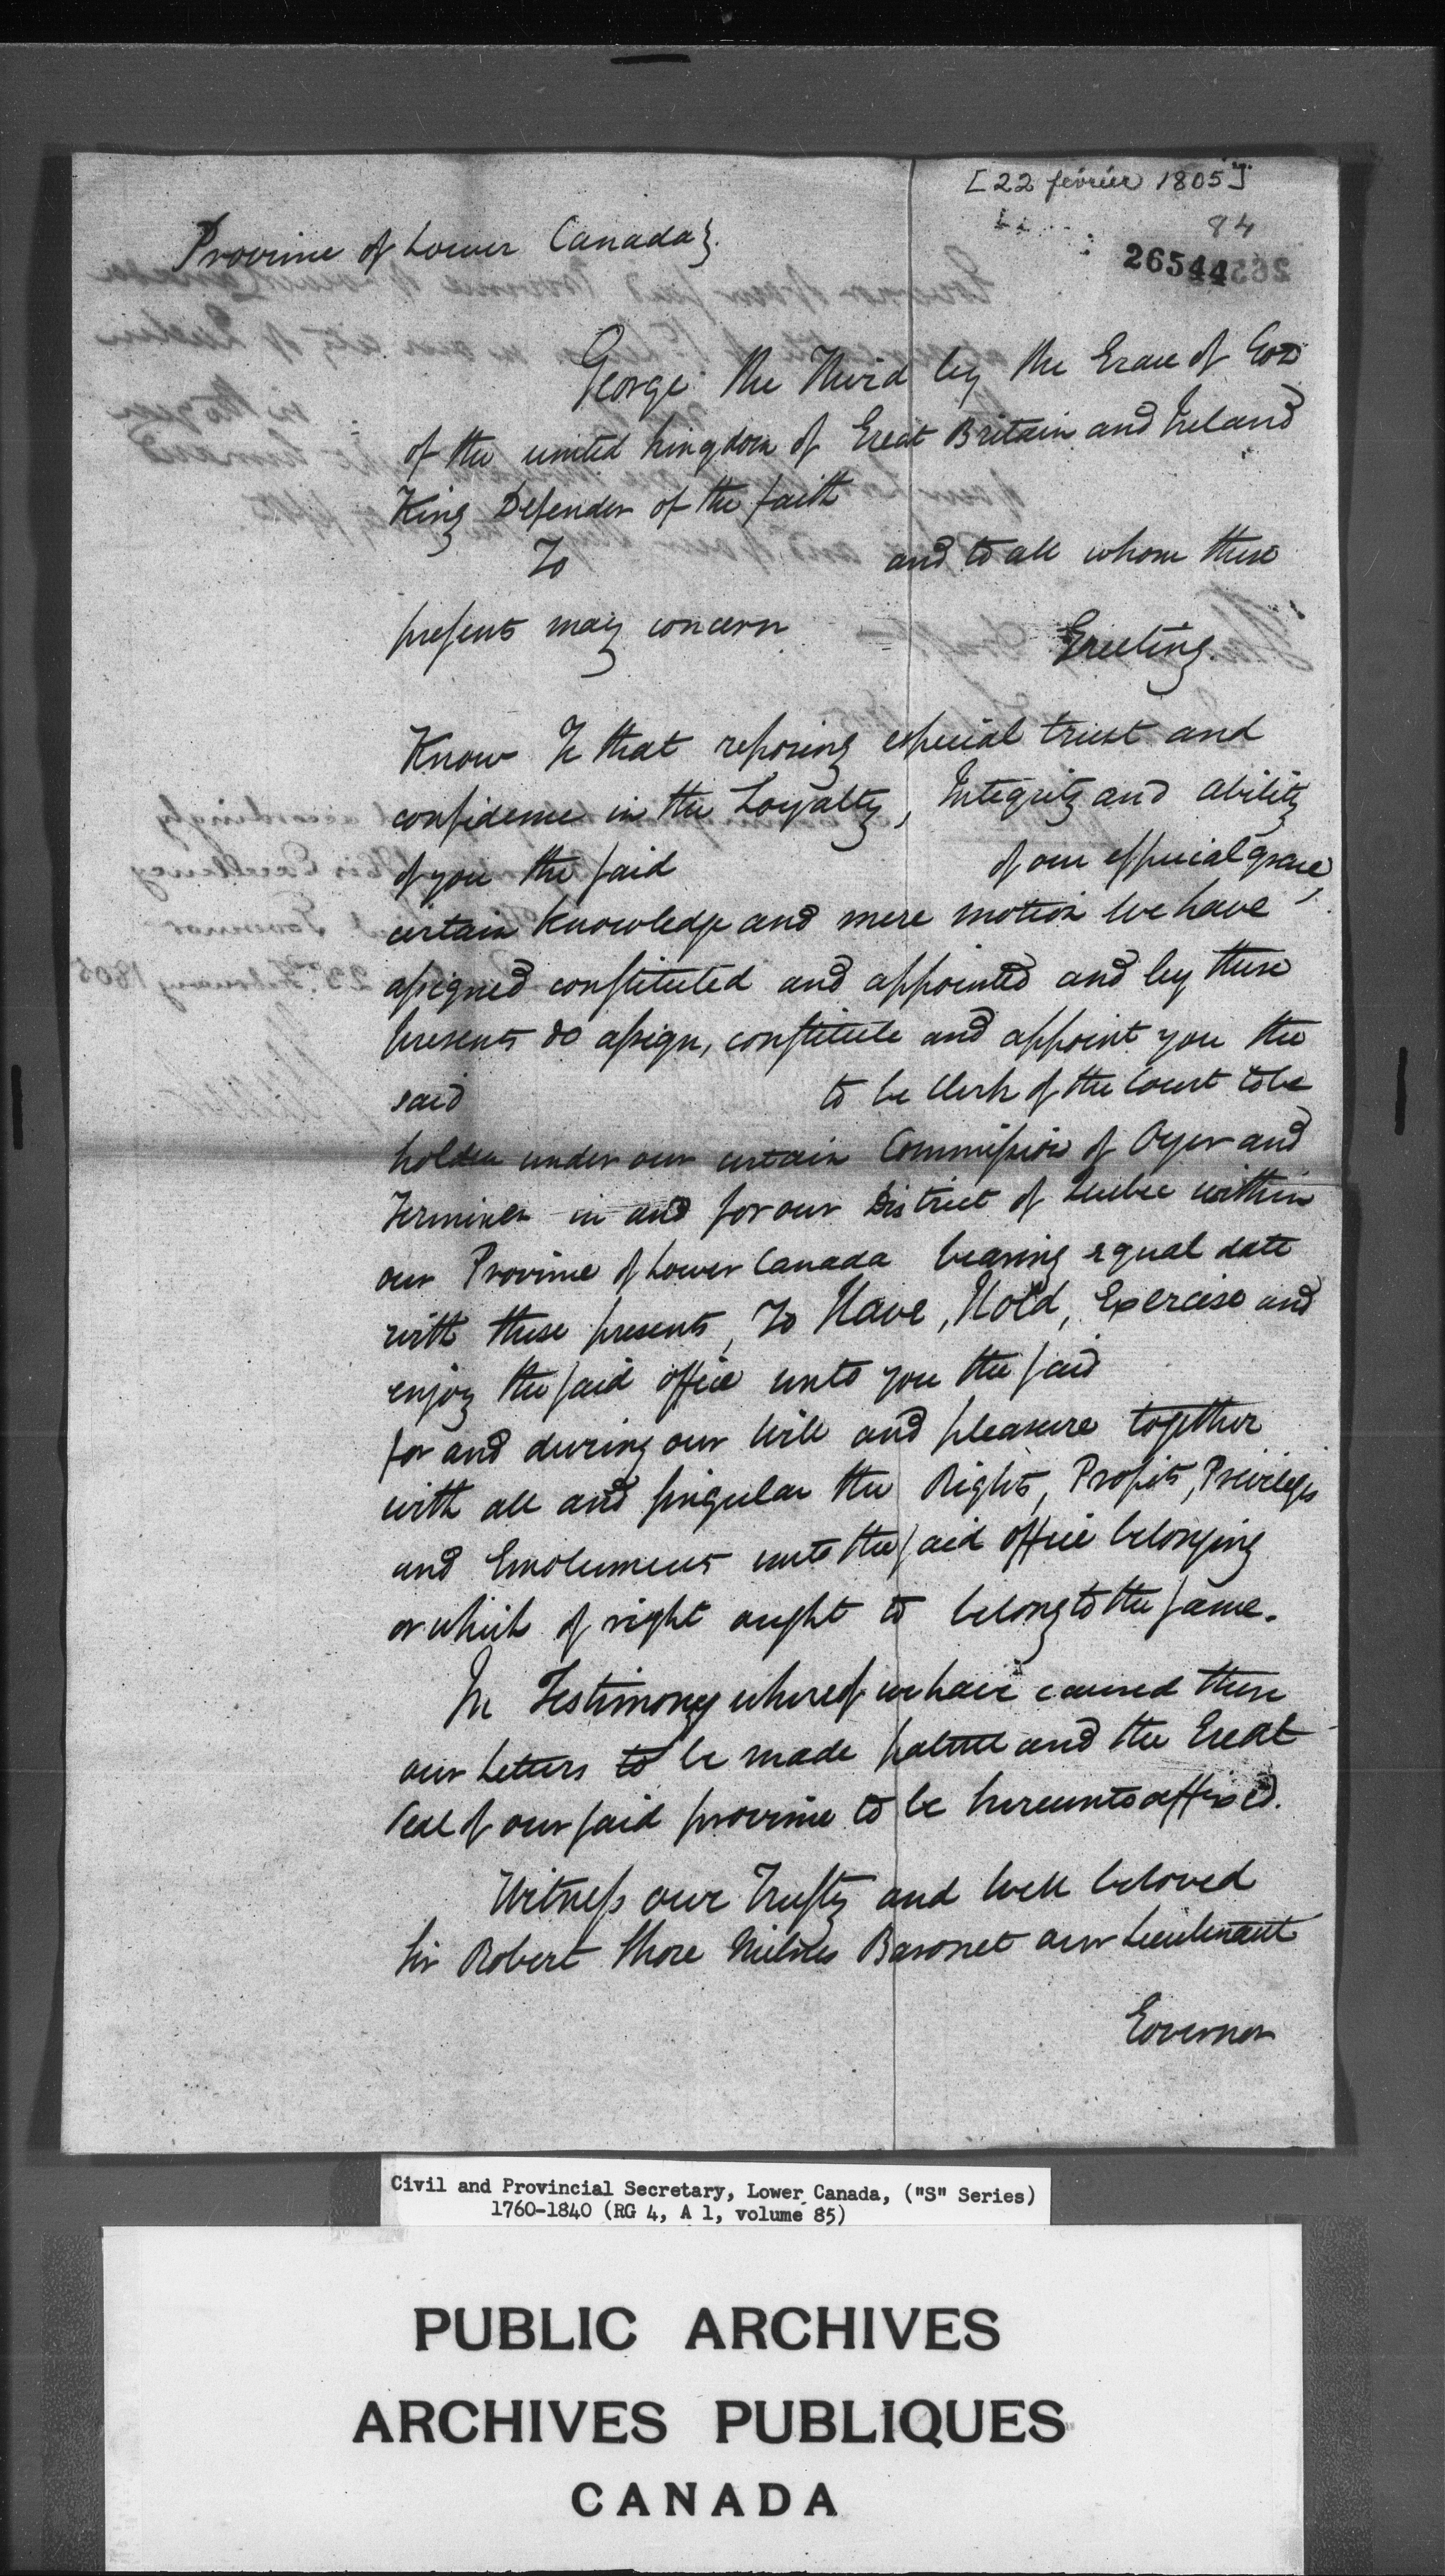 [22 février 1805]
84
26544
Province of Lower Canada}.
George the Third by the Grace of God
of the united kingdom of Great Britain and Ireland
King Defender of the faith
To and to all whom these
presents may concern
Greeting.
Know Ye that reposing especial trust and
confidence in the Loyalty, Integrity and ability
of you the said of our especial grace,
certain knowledge and mere motion We have
assigned constituted and appointed and by these
presents do assign, constitute and appoint you the
said to be Clerk of the Court to be
holden under our certain Commission of Oyer and
Terminer in and for our District of Quebec within
our Province of Lower Canada bearing equal date
with these presents, To Have, Hold, Exercise and
enjoy the said office unto you the said
for and during our Will and pleasure together
with all and singular the Rights, Profits, Privileges
and Emoluments unto the said office belonging
or which of right ought to belong to the same.
In Testimony whereof we have caused these
our Letters to be made patent and the Great
Seal of our said province to be hereunto affixed.
Witness our Trusty and Well beloved
Sir Robert Shore Milnes Baronet our Lieutenant
Governor
Civil and Provincial Secretary, Lower Canada, ("S" Series)
1760-1840 (RG 4, A 1, volume 85)
PUBLIC ARCHIVES
ARCHIVES PUBLIQUES
CANADA